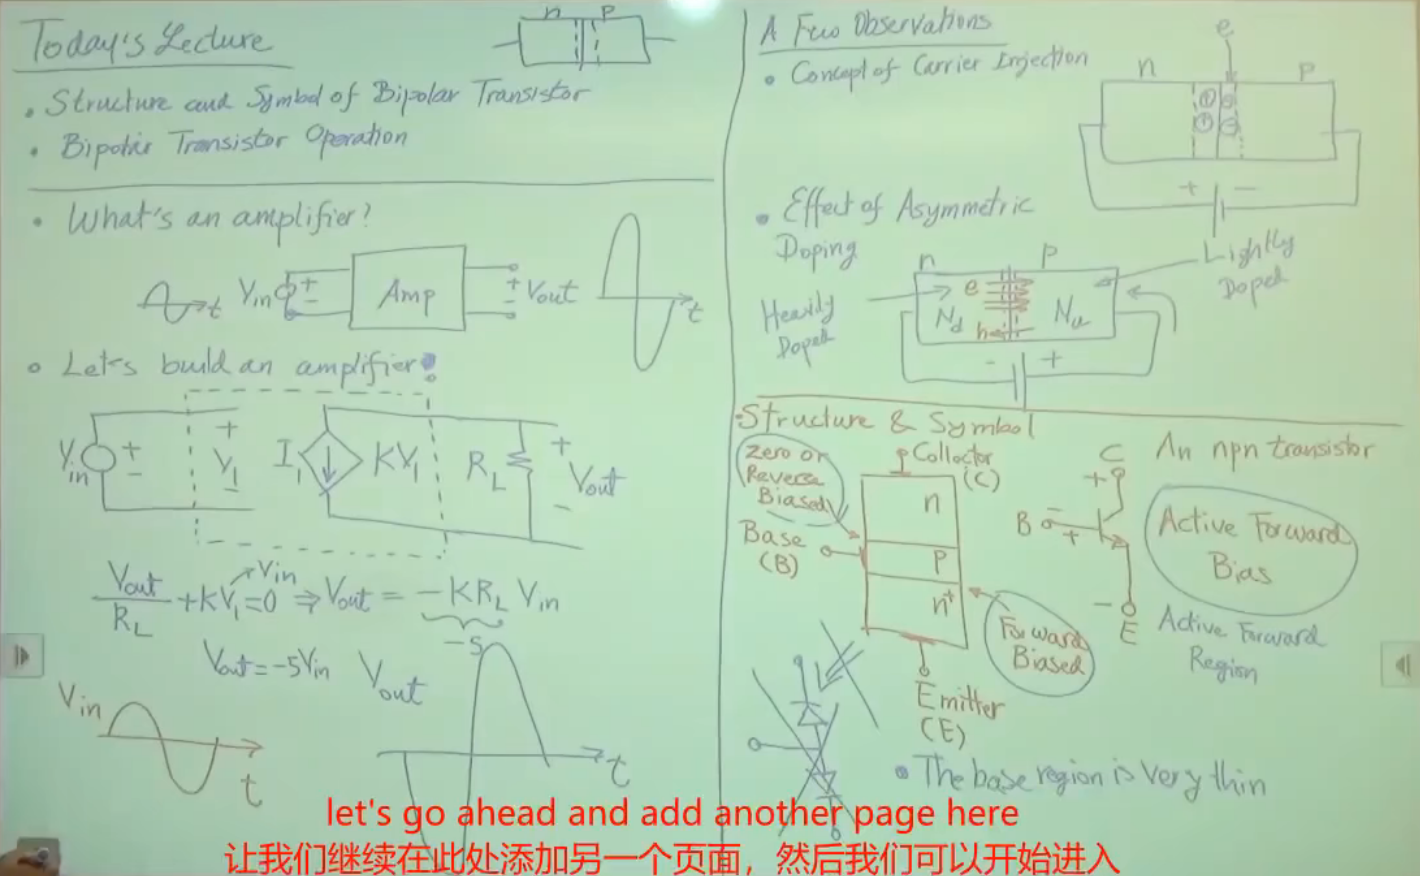 Today's Lecture
n P
• Structure and Symbol of Bipolar Transistor
• Bipolar Transistor Operation
• What's an amplifier?
t Vin + − Amp + − Vout t
• Let's build an amplifier!
Vin + − + V1 − I1 KV1 RL + Vout −
Vout/RL + KV1 = 0 ⇒ Vout = −KRL Vin
Vin
−5
Vout = −5Vin
Vin t
Vout t
A Few Observations
• Concept of Carrier Injection
e
n P
+ + − −
+ −
• Effect of Asymmetric
Doping
n P
Heavily
Doped
Lightly
Doped
e
Nd Na
h
- +
• Structure & Symbol
Zero or
Reverse
Biased
Collector
(C)
n
Base
(B)
P
n+
Forward
Biased
Emitter
(E)
An npn transistor
C
+
B − +
− E
Active Forward
Bias
Active Forward
Region
• The base region is very thin
let's go ahead and add another page here
让我们继续在此处添加另一个页面，然后我们可以开始进入